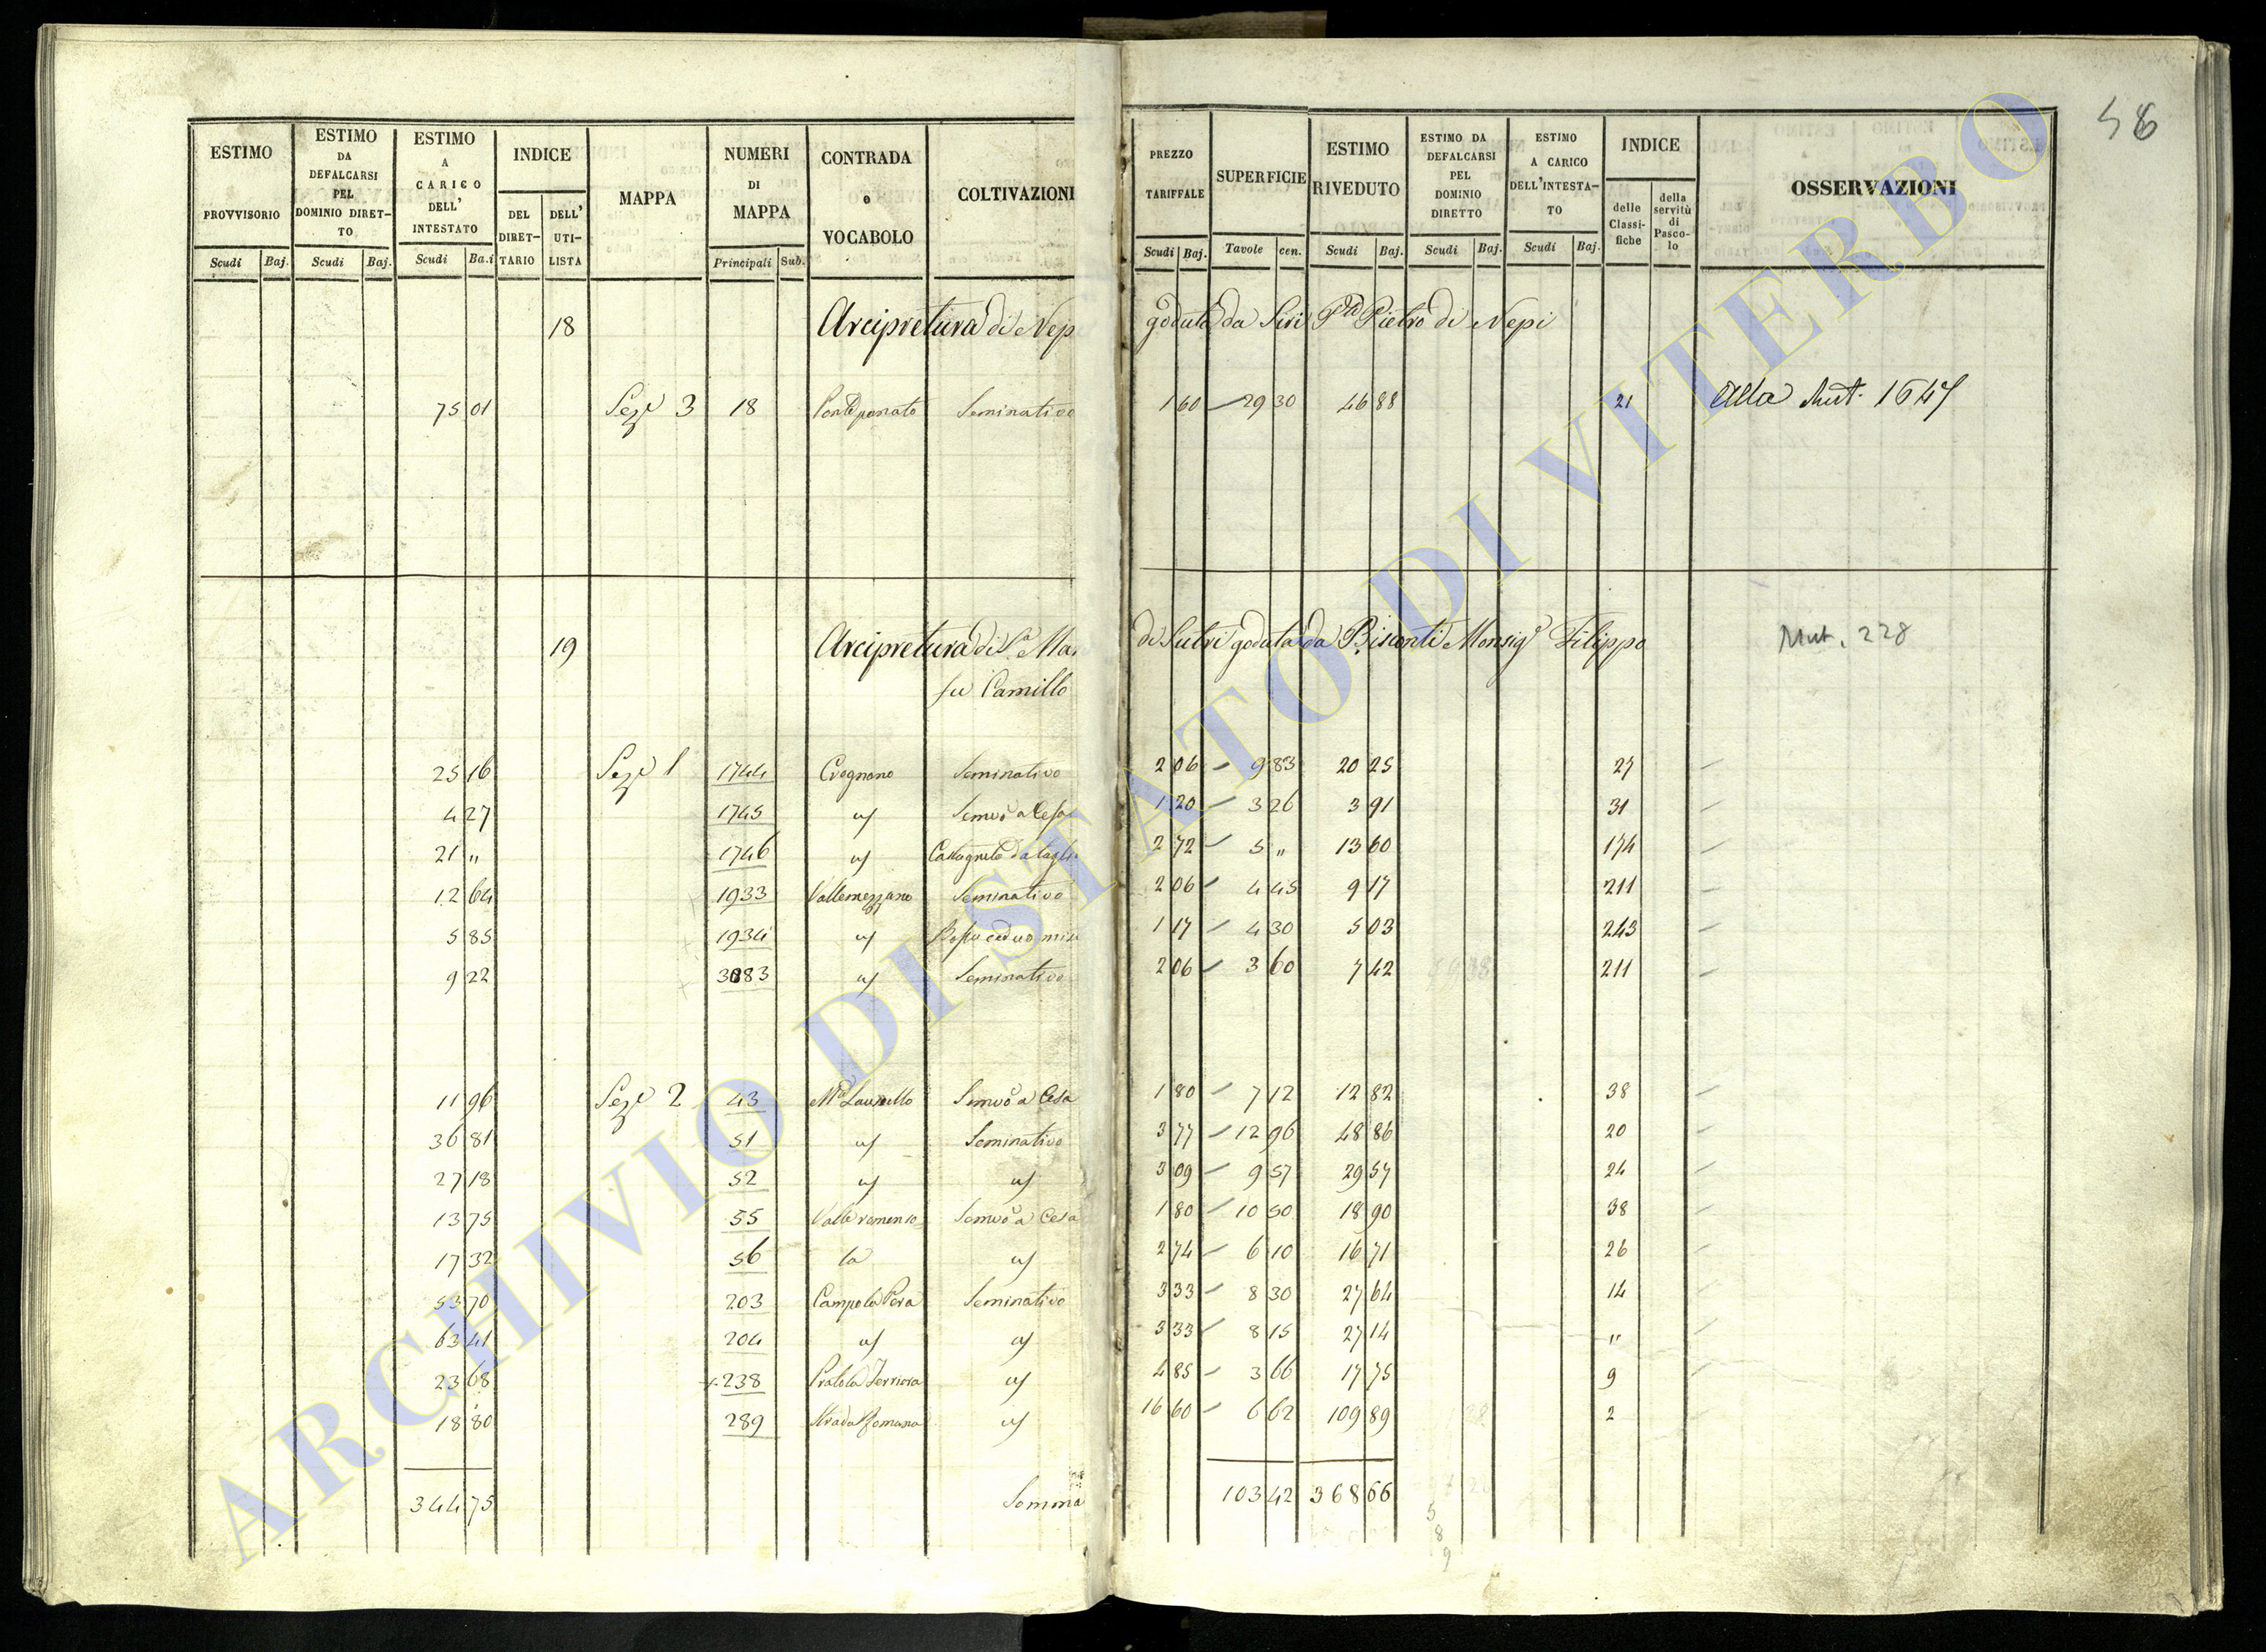 58
ESTIMO PROVVISORIO Scudi Baj.
ESTIMO DA DEFALCARSI PEL DOMINIO DIRETTO Scudi Baj.
ESTIMO A CARICO DELL' INTESTATO Scudi Ba.i
INDICE DEL DIRETTARIO DELL' UTILISTA
MAPPA
NUMERI DI MAPPA Principali Sub.
CONTRADA o VOCABOLO
COLTIVAZIONI
PREZZO TARIFFALE Scudi Baj.
SUPERFICIE Tavole cen.
ESTIMO RIVEDUTO Scudi Baj.
ESTIMO DA DEFALCARSI PEL DOMINIO DIRETTO Scudi Baj.
ESTIMO A CARICO DELL'INTESTATO Scudi Baj.
INDICE delle Classifiche della servitù di Pascolo
OSSERVAZIONI
18 Arcipretura di Nepi goduta da Siri Pietro di Nepi
75 01 Seze 3 18 Seminativo 1 60 29 30 46 88 21 Alla Mut. 1647
19 Arcipretura di Sa Mar di Sutri goduta da Bisconti Monsigr Filippo Mut. 228
fu Camillo
25 16 Seze 1 1744 Crognano Seminativo 2 06 9 83 20 25 27
4 27 1745 " Semvo a Cesa 1 20 3 26 3 91 31
21 " 1746 " Castagneto da taglio 2 72 5 " 13 60 174
12 64 1933 Vallemezzano Seminativo 2 06 4 45 9 17 211
5 85 1934 " Bosco ceduo mis 1 17 4 30 5 03 243
9 22 3083 " Seminativo 2 06 3 60 7 42 211
11 96 Seze 2 43 Semvo a Cesa 1 80 7 12 12 82 38
36 81 51 " Seminativo 3 77 12 96 48 86 20
27 18 52 " " 3 09 9 57 29 57 24
13 75 55 Semvo a Cesa 1 80 10 50 18 90 38
17 32 56 la " 2 74 6 10 16 71 26
53 70 203 Campo la Pera Seminativo 3 33 8 30 27 64 14
63 41 204 " " 3 33 8 15 27 14 "
23 68 238 " 4 85 3 66 17 75 9
18 80 289 Strada Romana " 16 60 6 62 109 89 2
344 75 Somma 103 42 368 66
5
8
9
ARCHIVIO DI STATO DI VITERBO